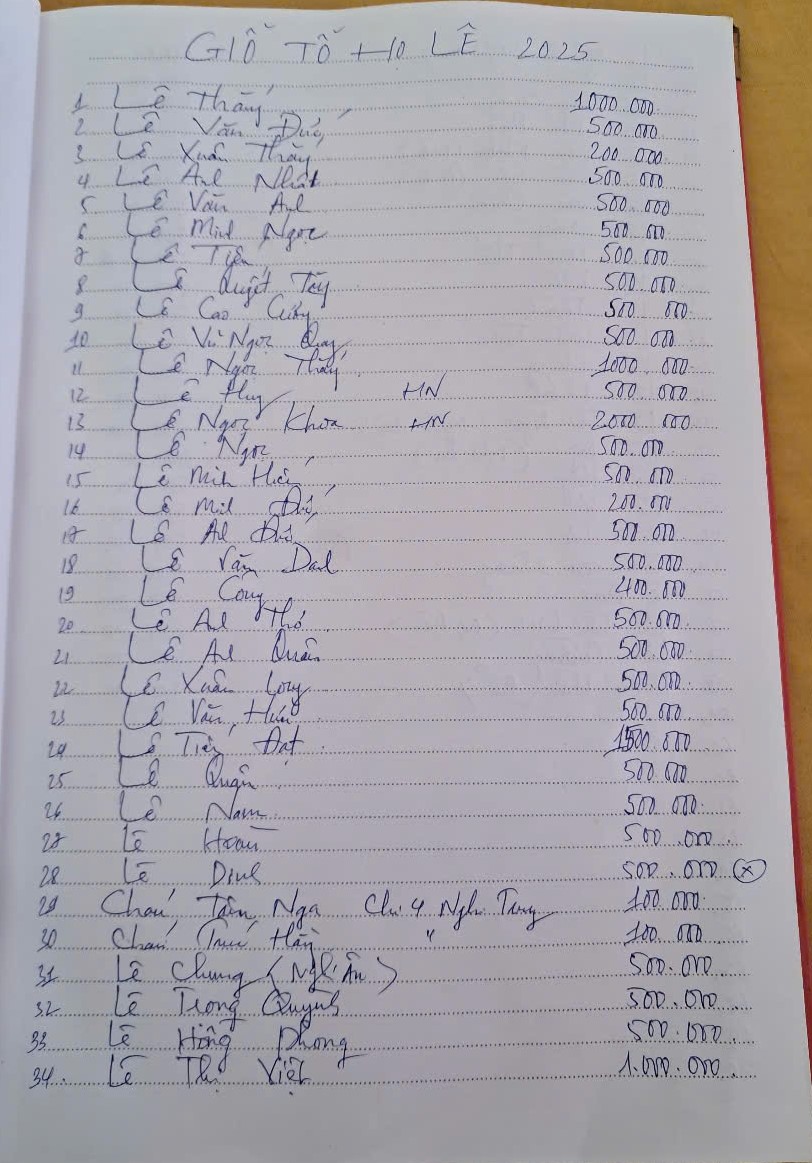 GIỖ TỔ HỌ LÊ 2025
1 Lê Thắng 1000.000
2 Lê Văn Đức 500.000
3 Lê Xuân Thắng 200.000
4 Lê Anh Nhất 500.000
5 Lê Văn Anh 500.000
6 Lê Minh Ngọc 500.000
7 Lê Tiến 500.000
8 Lê Quyết 500.000
9 Lê Cao Cường 500.000
10 Lê Vũ Ngọc Quang 500.000
11 Lê Ngọc 1000.000
12 Lê Huy HN 500.000
13 Lê Ngọc Khoa HN 2000.000
14 Lê Ngọc 500.000
15 Lê Minh Hiếu 500.000
16 Lê Minh Đức 200.000
17 Lê Anh Đức 500.000
18 Lê Văn Danh 500.000
19 Lê Công 400.000
20 Lê Anh Thơ 500.000
21 Lê Anh Quân 500.000
22 Lê Xuân Long 500.000
23 Lê Văn 500.000
24 Lê Tiến Đạt 1500.000
25 Lê Quân 500.000
26 Lê Nam 500.000
27 Lê Hoàn 500.000
28 Lê Dinh 500.000 (x)
29 Cháu Tâm Nga Chi 4 Nghi Trung 100.000
30 Cháu " 100.000
31 Lê Chung (Nghi Ân) 500.000
32 Lê Trọng Quỳnh 500.000
33 Lê Hồng Phong 500.000
34. Lê Thị Việt 1.000.000